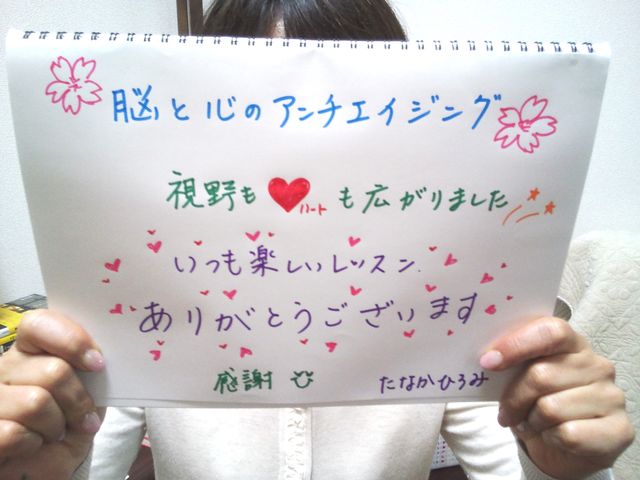 脳と心のアンチエイジング
視野も♥ハートも広がりました
いつも楽しいレッスン
ありがとうございます
感謝
たなかひろみ